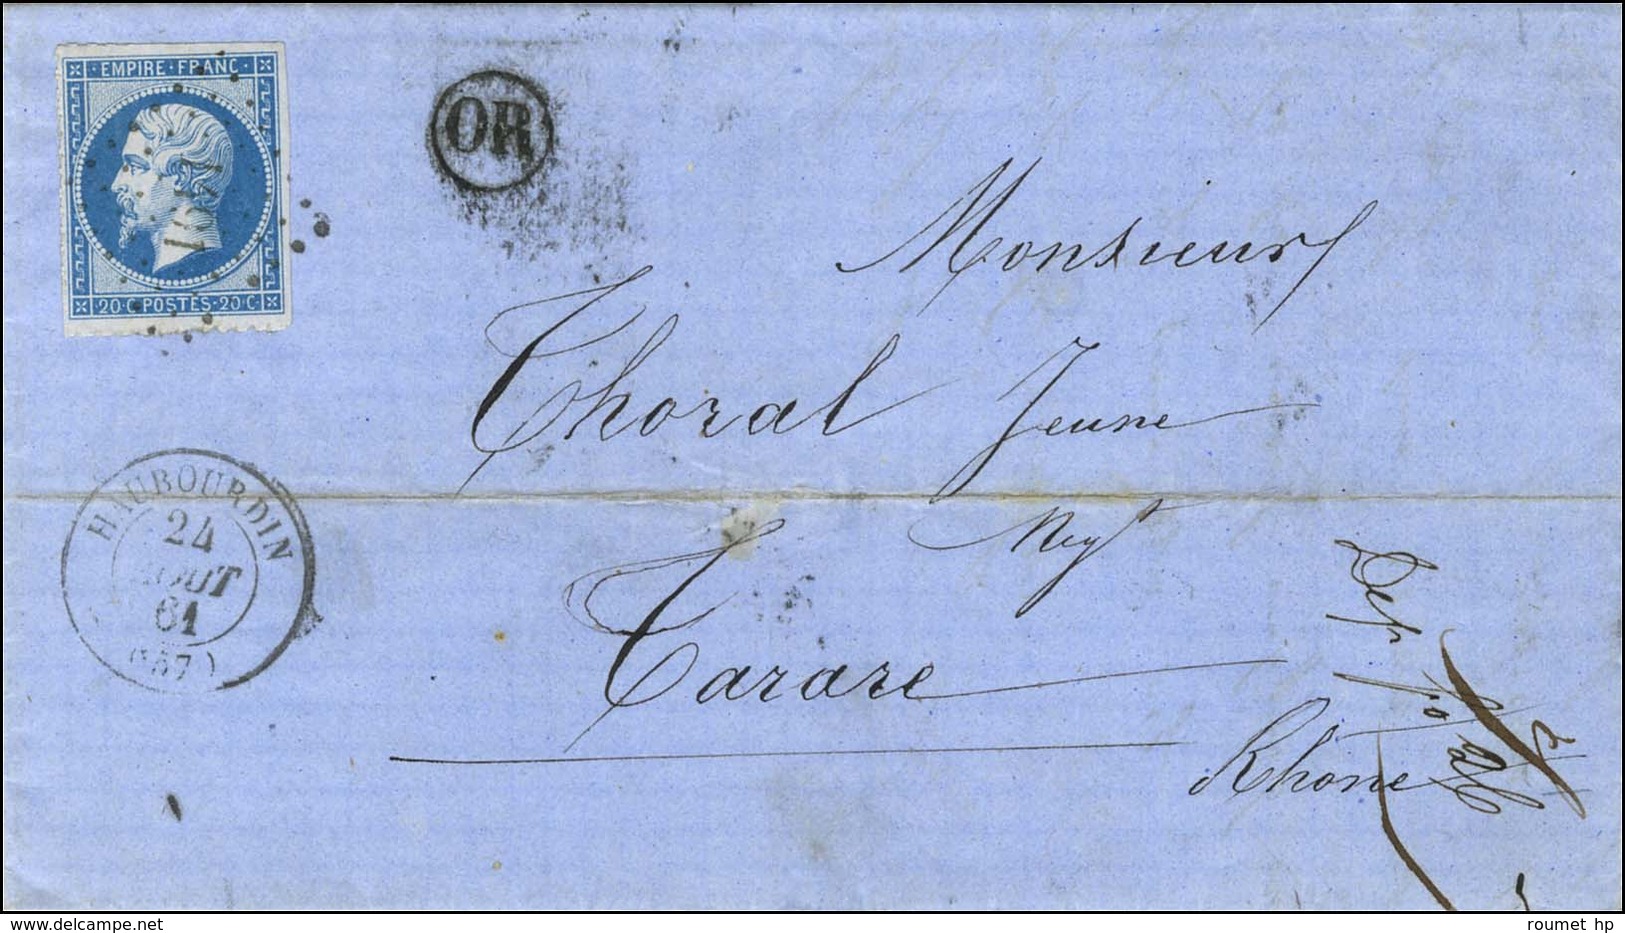 EMPIRE · FRANC ·
20 · C POSTES · 20 C ·
OR
Monsieur
Thoral Jeune
Negt
Tarare
Rhône
HAUBOURDIN
24
AOUT
61
(57)
delcampe.net
roumet hp